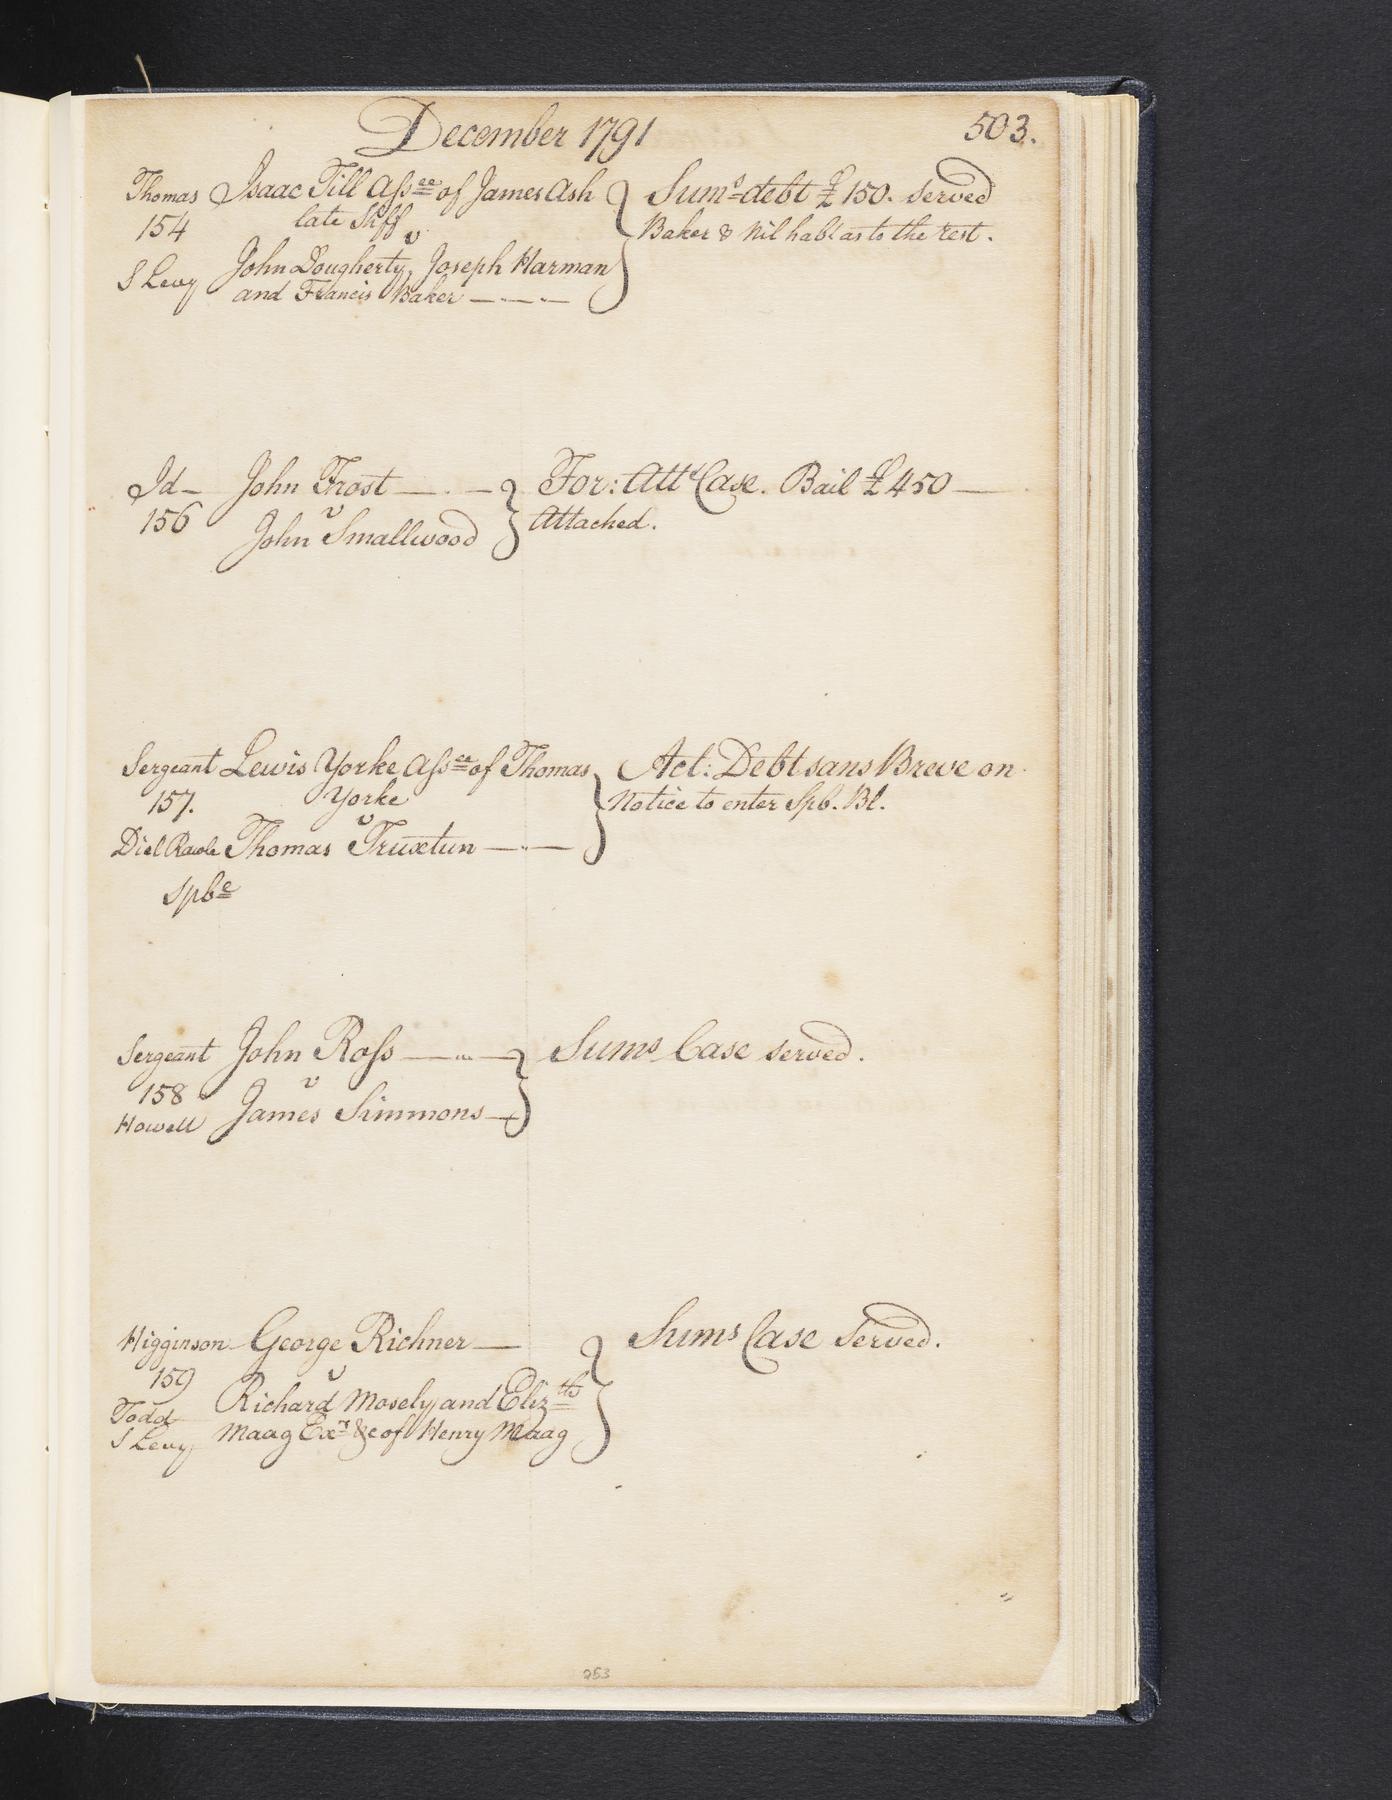 December 1791
503.
Thomas Isaac Till Assee of James Ash } Sums debt £150. served
154 late Shff Baker & Nil habt as to the rest.
v
S Levy John Dougherty, Joseph Harman
and Francis Baker
Id John Frost } For: Attt Case. Bail £450
156 v Attached.
John Smallwood
Sergeant Lewis Yorke Assee of Thomas } Act: Debt sans Breve on
157. Yorke Notice to enter Spb. Bl.
v
Diel Rawle Thomas Truxtun
Spbe
Sergeant John Ross } Sums Case served.
158 v
Howell James Simmons
Higginson George Richner } Sums Case Served.
159 v
Todd Richard Mosely and Elizth
S Levy Maag Exr &c of Henry Maag
253